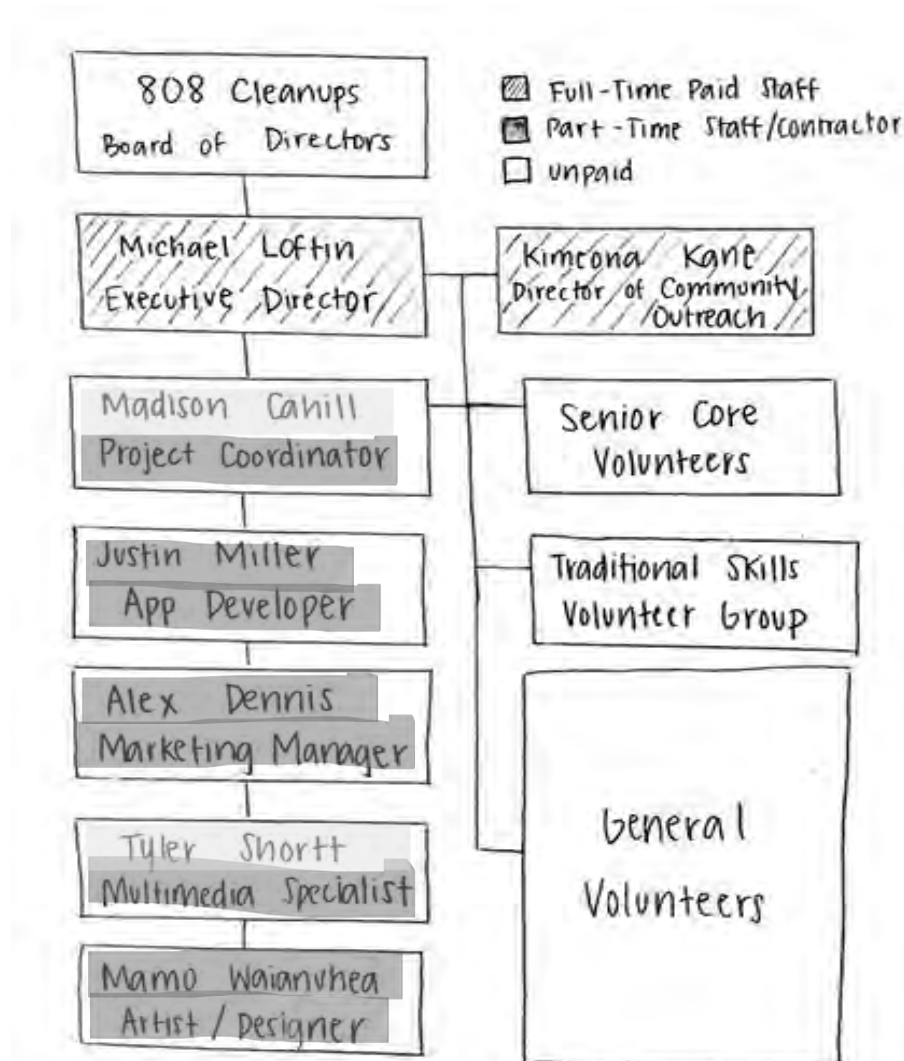 808 Cleanups
Board of Directors
Full-Time Paid Staff
Part-Time Staff/Contractor
unpaid
Michael Loftin
Executive Director
Kimeona Kane
Director of Community
Outreach
Madison Cahill
Project Coordinator
Senior Core
Volunteers
Justin Miller
App Developer
Traditional Skills
Volunteer Group
Alex Dennis
Marketing Manager
General
Volunteers
Tyler Shortt
Multimedia Specialist
Mamo Waianuhea
Artist / Designer